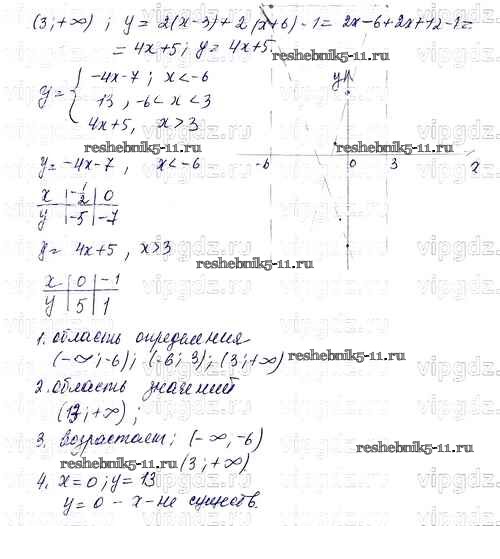 (3;+∞) ; y = 2(x-3)+2(x+6)-1= 2x-6+2x+12-1=
= 4x+5; y = 4x+5.
y = { -4x-7 ; x<-6
13 , -6<x<3
4x+5, x>3
y
reshebnik5-11.ru
reshebnik5-11.ru
y = -4x-7 , x<-6
-6 0 3 x
x | -1/2 | 0
y | -5 | -7
y = 4x+5 , x>3
reshebnik5-11.ru
x | 0 | -1
y | 5 | 1
1. область определения
(-∞;-6); (-6; 3); (3;+∞)
reshebnik5-11.ru
2. область значений
(13;+∞) ;
3. возрастает; (-∞,-6)
reshebnik5-11.ru
(3;+∞)
4. x=0; y=13
y=0 - x - не существ.
vipgdz.ru